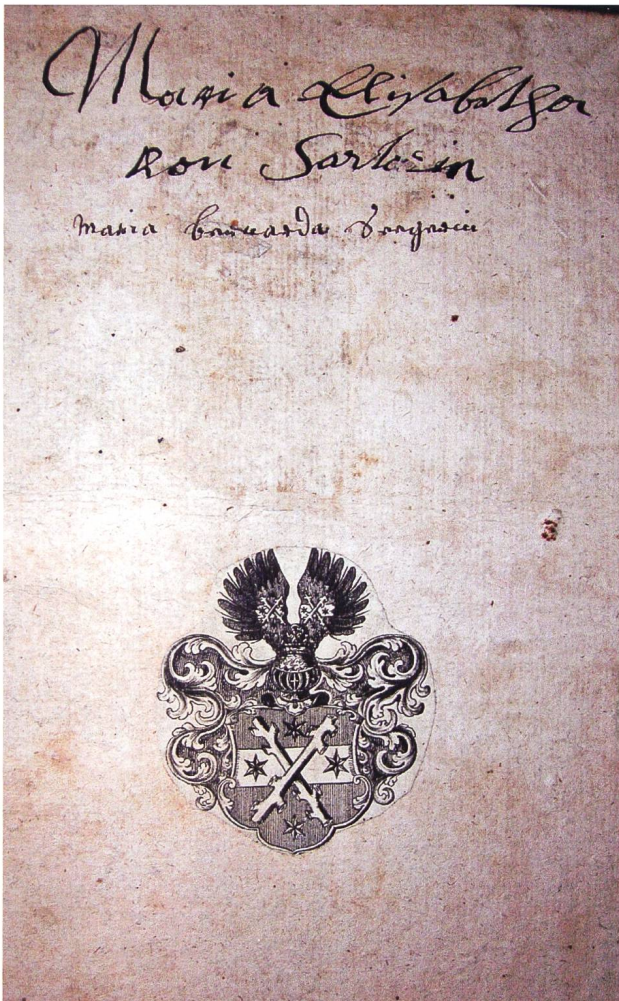 Maria Elisabetha
von Sartorin
Maria bernarda